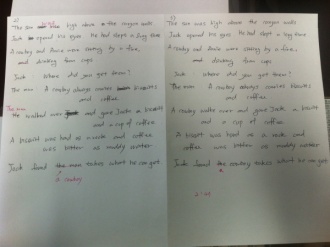 a)
The sun was high above the canyon walls
Jack opened his eyes. He had slept a long time
A cowboy and Annie were sitting by a fire,
and drinking from cups
Jack: Where did you get them?
The man: A cowboy always carries biscuits
and coffee
The man
He walked over and gave Jack a biscuit
and a cup of coffee
A biscuit was hard as a rock and coffee
was bitter as muddy water
Jack found the man takes what he can get
A cowboy
The sun was high above the canyon walls
Jack opened his eyes. He had slept a long time
A cowboy and Annie were sitting by a fire,
and drinking from cups
Jack: Where did you get them?
The man: A cowboy always carries biscuits
and coffee
A cowboy walked over and gave Jack a biscuit
and a cup of coffee
A biscuit was hard as a rock and
coffee was bitter as muddy water
Jack found the cowboy takes what he can get